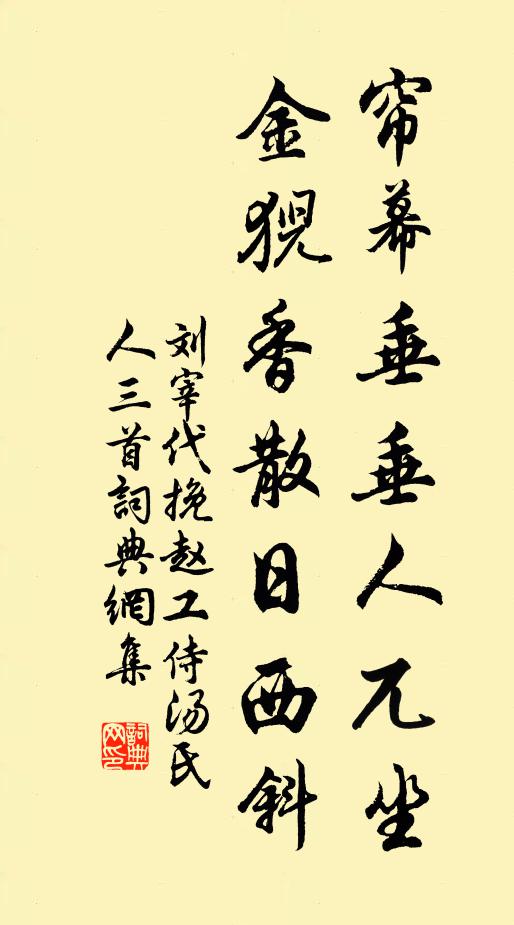 帘幕垂垂人兀坐
金猊香散日西斜
刘宰代挽赵工侍汤氏
人三首詞典網集
詞典网印